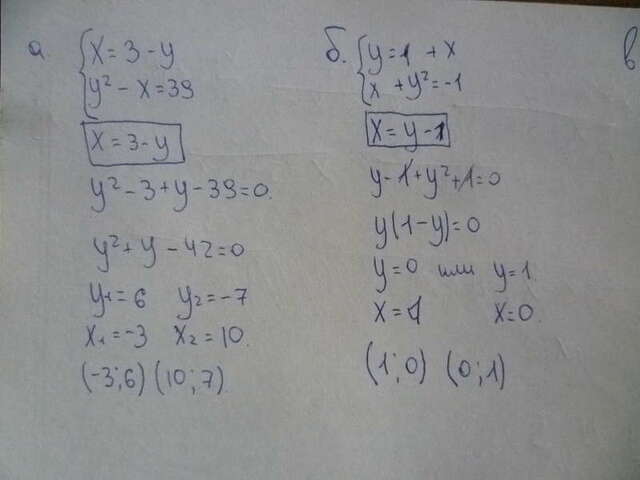 а. { x = 3 - y
y² - x = 39
x = 3 - y
y² - 3 + y - 39 = 0.
y² + y - 42 = 0
y₁ = 6 y₂ = -7
x₁ = -3 x₂ = 10.
(-3; 6) (10; 7)
б. { y = 1 + x
x + y² = -1
x = y - 1
y - 1 + y² + 1 = 0
y(1 - y) = 0
y = 0 или y = 1
x = 1 x = 0.
(1; 0) (0; 1)
в